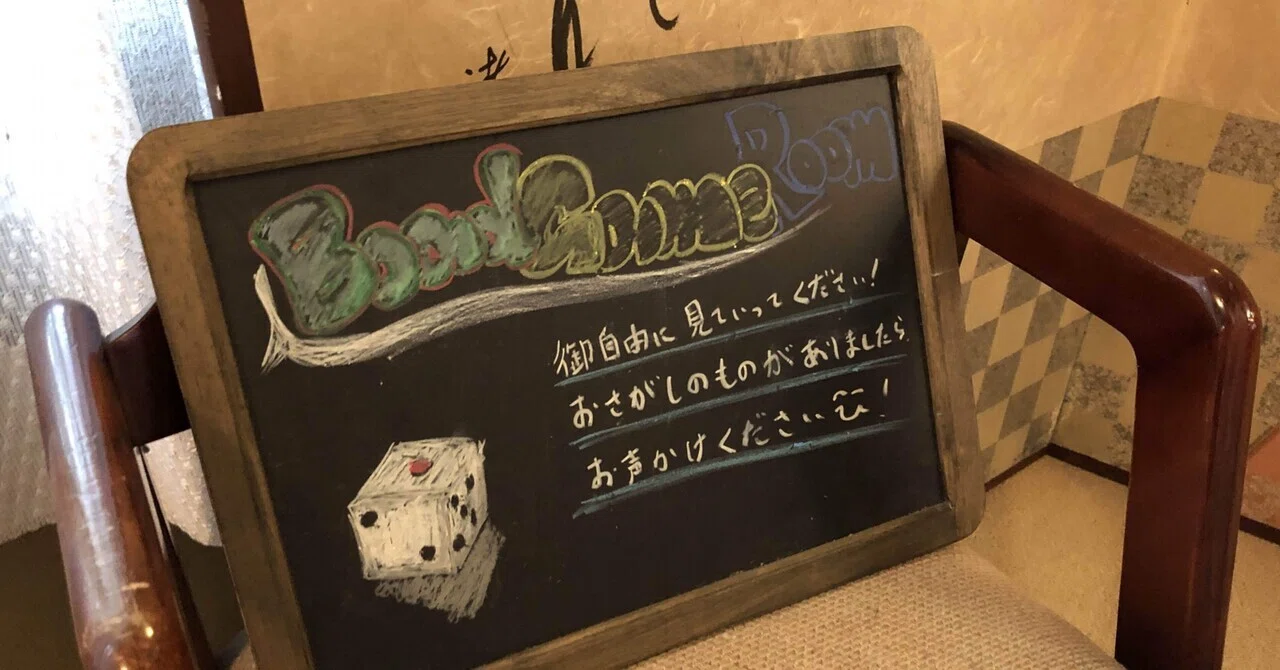 Board Game Room
御自由に見ていって ください!
おさがしのものがありましたら
お声かけください!